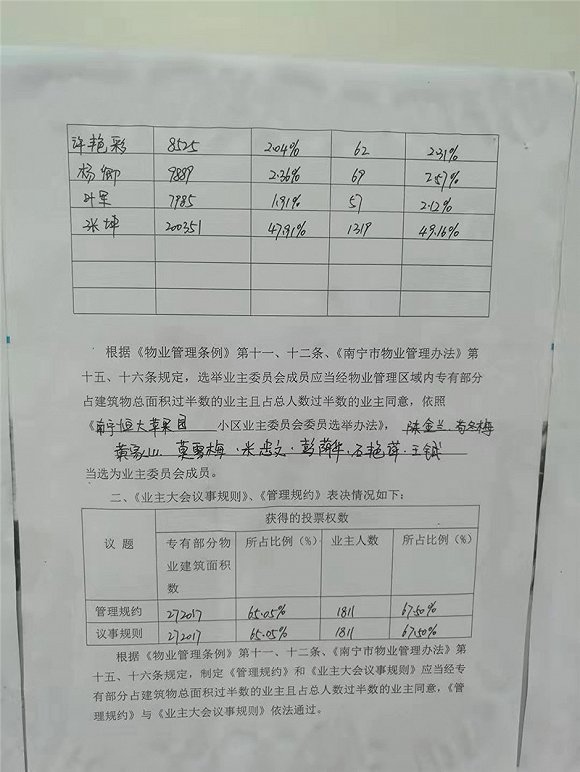 许艳彩 8525 2.04% 62 2.31%
杨卿 9889 2.36% 69 2.57%
叶军 7985 1.91% 57 2.12%
张坤 200351 47.91% 1319 49.16%
根据《物业管理条例》第十一、十二条、《南宁市物业管理办法》第
十五、十六条规定，选举业主委员会成员应当经物业管理区域内专有部分
占建筑物总面积过半数的业主且占总人数过半数的业主同意，依照
《南宁恒大苹果园 小区业主委员会委员选举办法》， 陈金兰、
莫雪梅、石艳萍、王
当选为业主委员会成员。
二、《业主大会议事规则》、《管理规约》表决情况如下：
议 题 获得的投票权数
专有部分物业建筑面积数 所占比例（%） 业主人数 所占比例（%）
管理规约 272017 65.05% 1811 67.50%
议事规则 272017 65.05% 1811 67.50%
根据《物业管理条例》第十一、十二条、《南宁市物业管理办法》第
十五、十六条规定，制定《管理规约》和《业主大会议事规则》应当经专
有部分占建筑物总面积过半数的业主且占总人数过半数的业主同意，《管
理规约》与《业主大会议事规则》依法通过。